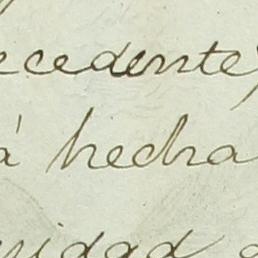 ecedente,
á hecha
nidad a